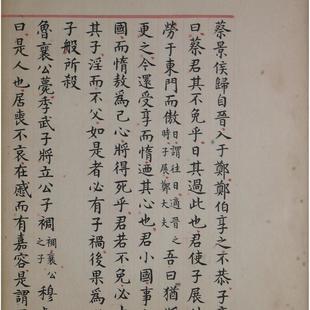 蔡景侯歸自晉入于鄭鄭伯享之不恭子
曰蔡君其不免乎日其過此也君使子展
勞于東門而傲日謂往日適晉之時子展鄭大夫吾曰猶將
更之今還受享而惰迺其心也君小國事
國而惰敖為己心將得死乎君若不免必
其子淫而不父如是者必有子禍後果為
子般所殺
魯襄公薨季武子將立公子裯裯襄公之子穆
曰是人也居喪不哀在慼而有嘉容是謂